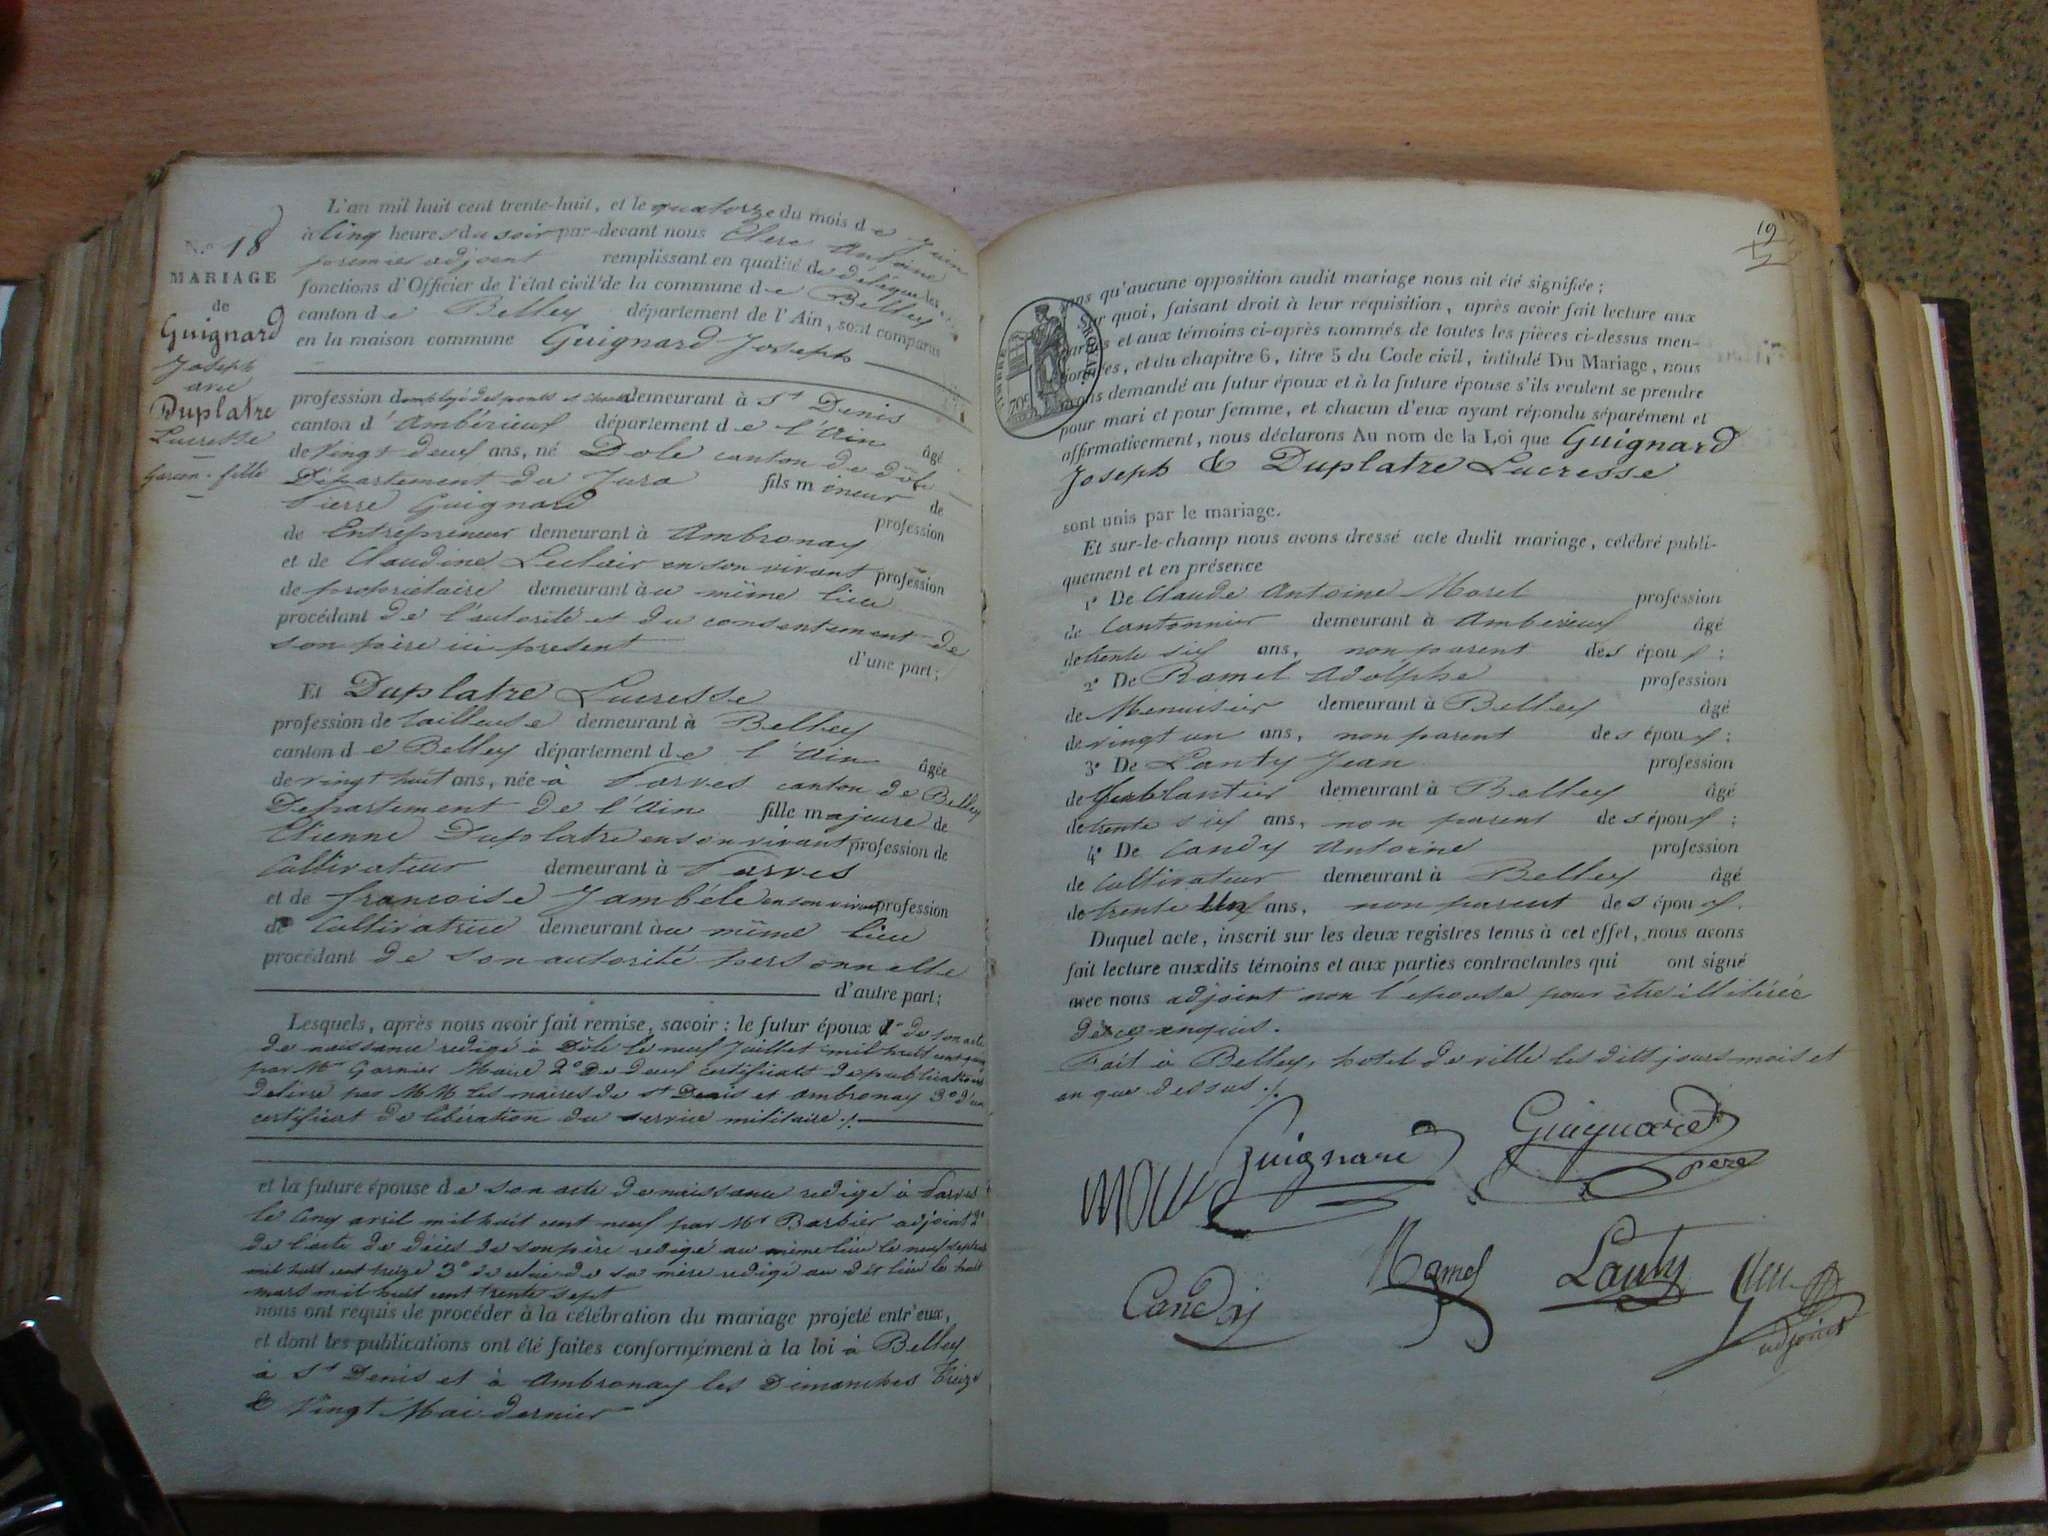 N.o 18
MARIAGE
de
Guignard
Joseph
avec
Duplatre
Lucresse
Garçon - fille
L'an mil huit cent trente-huit, et le quatorze du mois de Juin
à Cinq heures du soir par-devant nous Clerc Antoine
premier adjoint remplissant en qualité de délégué les
fonctions d'Officier de l'état civil de la commune de Belley
canton de Belley département de l'Ain, sont comparus
en la maison commune Guignard Joseph
profession d'employé des ponts et chaus demeurant à St Denis
canton d'Ambérieux département de l'Ain âgé
de Vingt deux ans, né Dole canton de dôle
Département du Jura fils mineur de
Pierre Guignard profession
de Entrepreneur demeurant à Ambronay
et de Claudine Leclair en son vivant profession
de propriétaire demeurant au même lieu
procédant de l'autorité et du consentement de
son père ici présent d'une part;
Et Duplatre Lucresse
profession de tailleuse demeurant à Belley
canton de Belley département de l'Ain âgée
de vingt huit ans, née à Parves canton de Belley
Département de l'Ain fille majeure de
Etienne Duplatre en son vivant profession de
Cultivateur demeurant à Parves
et de françoise Jambéle en son vivant profession
de Cultivatrice demeurant au même lieu
procédant de son autorité personnelle
d'autre part;
Lesquels, après nous avoir fait remise, savoir: le futur époux 1° de son acte
de naissance redigé à Dôle le neuf Juillet mil huit cent
par Mr Garnier Maire 2° De deux certificats de publications
delivré par M M les maires de St Denis et Ambronay 3° d'un
certificat de libération du service militaire ./.
et la future épouse de son acte de naissance redigé à Parves
le Cinq avril mil huit cent neuf par Mr Barbier adjoint 2°
de l'acte de décès de son père redigé au même lieu le neuf septembre
mil huit cent treize 3° de celui de sa mère redigé au dit lieu le huit
mars mil huit cent trente sept
nous ont requis de procéder à la célébration du mariage projeté entr'eux,
et dont les publications ont été faites conformément à la loi à Belley
à St Denis et à Ambronay les Dimanches Treize
& Vingt Mai dernier
19
2
TIMBRE ROYAL
70c
sans qu'aucune opposition audit mariage nous ait été signifiée;
quoi, faisant droit à leur requisition, après avoir fait lecture aux
parties et aux témoins ci-après nommés de toutes les pièces ci-dessus men-
tionnées, et du chapitre 6, titre 5 du Code civil, intitulé Du Mariage, nous
avons demandé au futur époux et à la future épouse s'ils veulent se prendre
pour mari et pour femme, et chacun d'eux ayant répondu séparément et
affirmativement, nous déclarons Au nom de la Loi que Guignard
Joseph & Duplatre Lucresse
sont unis par le mariage.
Et sur-le-champ nous avons dressé acte dudit mariage, célébré publi-
quement et en présence
1° De Claude Antoine Morel profession
de Cantonnier demeurant à Ambérieux âgé
de trente six ans, non parent des époux;
2° De Ramel Adolphe profession
de Menuisier demeurant à Belley âgé
de vingt un ans, non parent des époux;
3° De Lanty Jean profession
de ferblantier demeurant à Belley âgé
de trente six ans, non parent des époux;
4° De Candy Antoine profession
de Cultivateur demeurant à Belley âgé
de trente Un ans, non parent des époux.
Duquel acte, inscrit sur les deux registres tenus à cet effet, nous avons
fait lecture auxdits témoins et aux parties contractantes qui ont signé
avec nous adjoint non l'epouse pour être illitérée
de ce enquis.
Fait à Belley, hotel de ville les dits jours mois et
an que dessus ./.
Guignard Guignard
père
Candy Ramel Lanty
adjoint